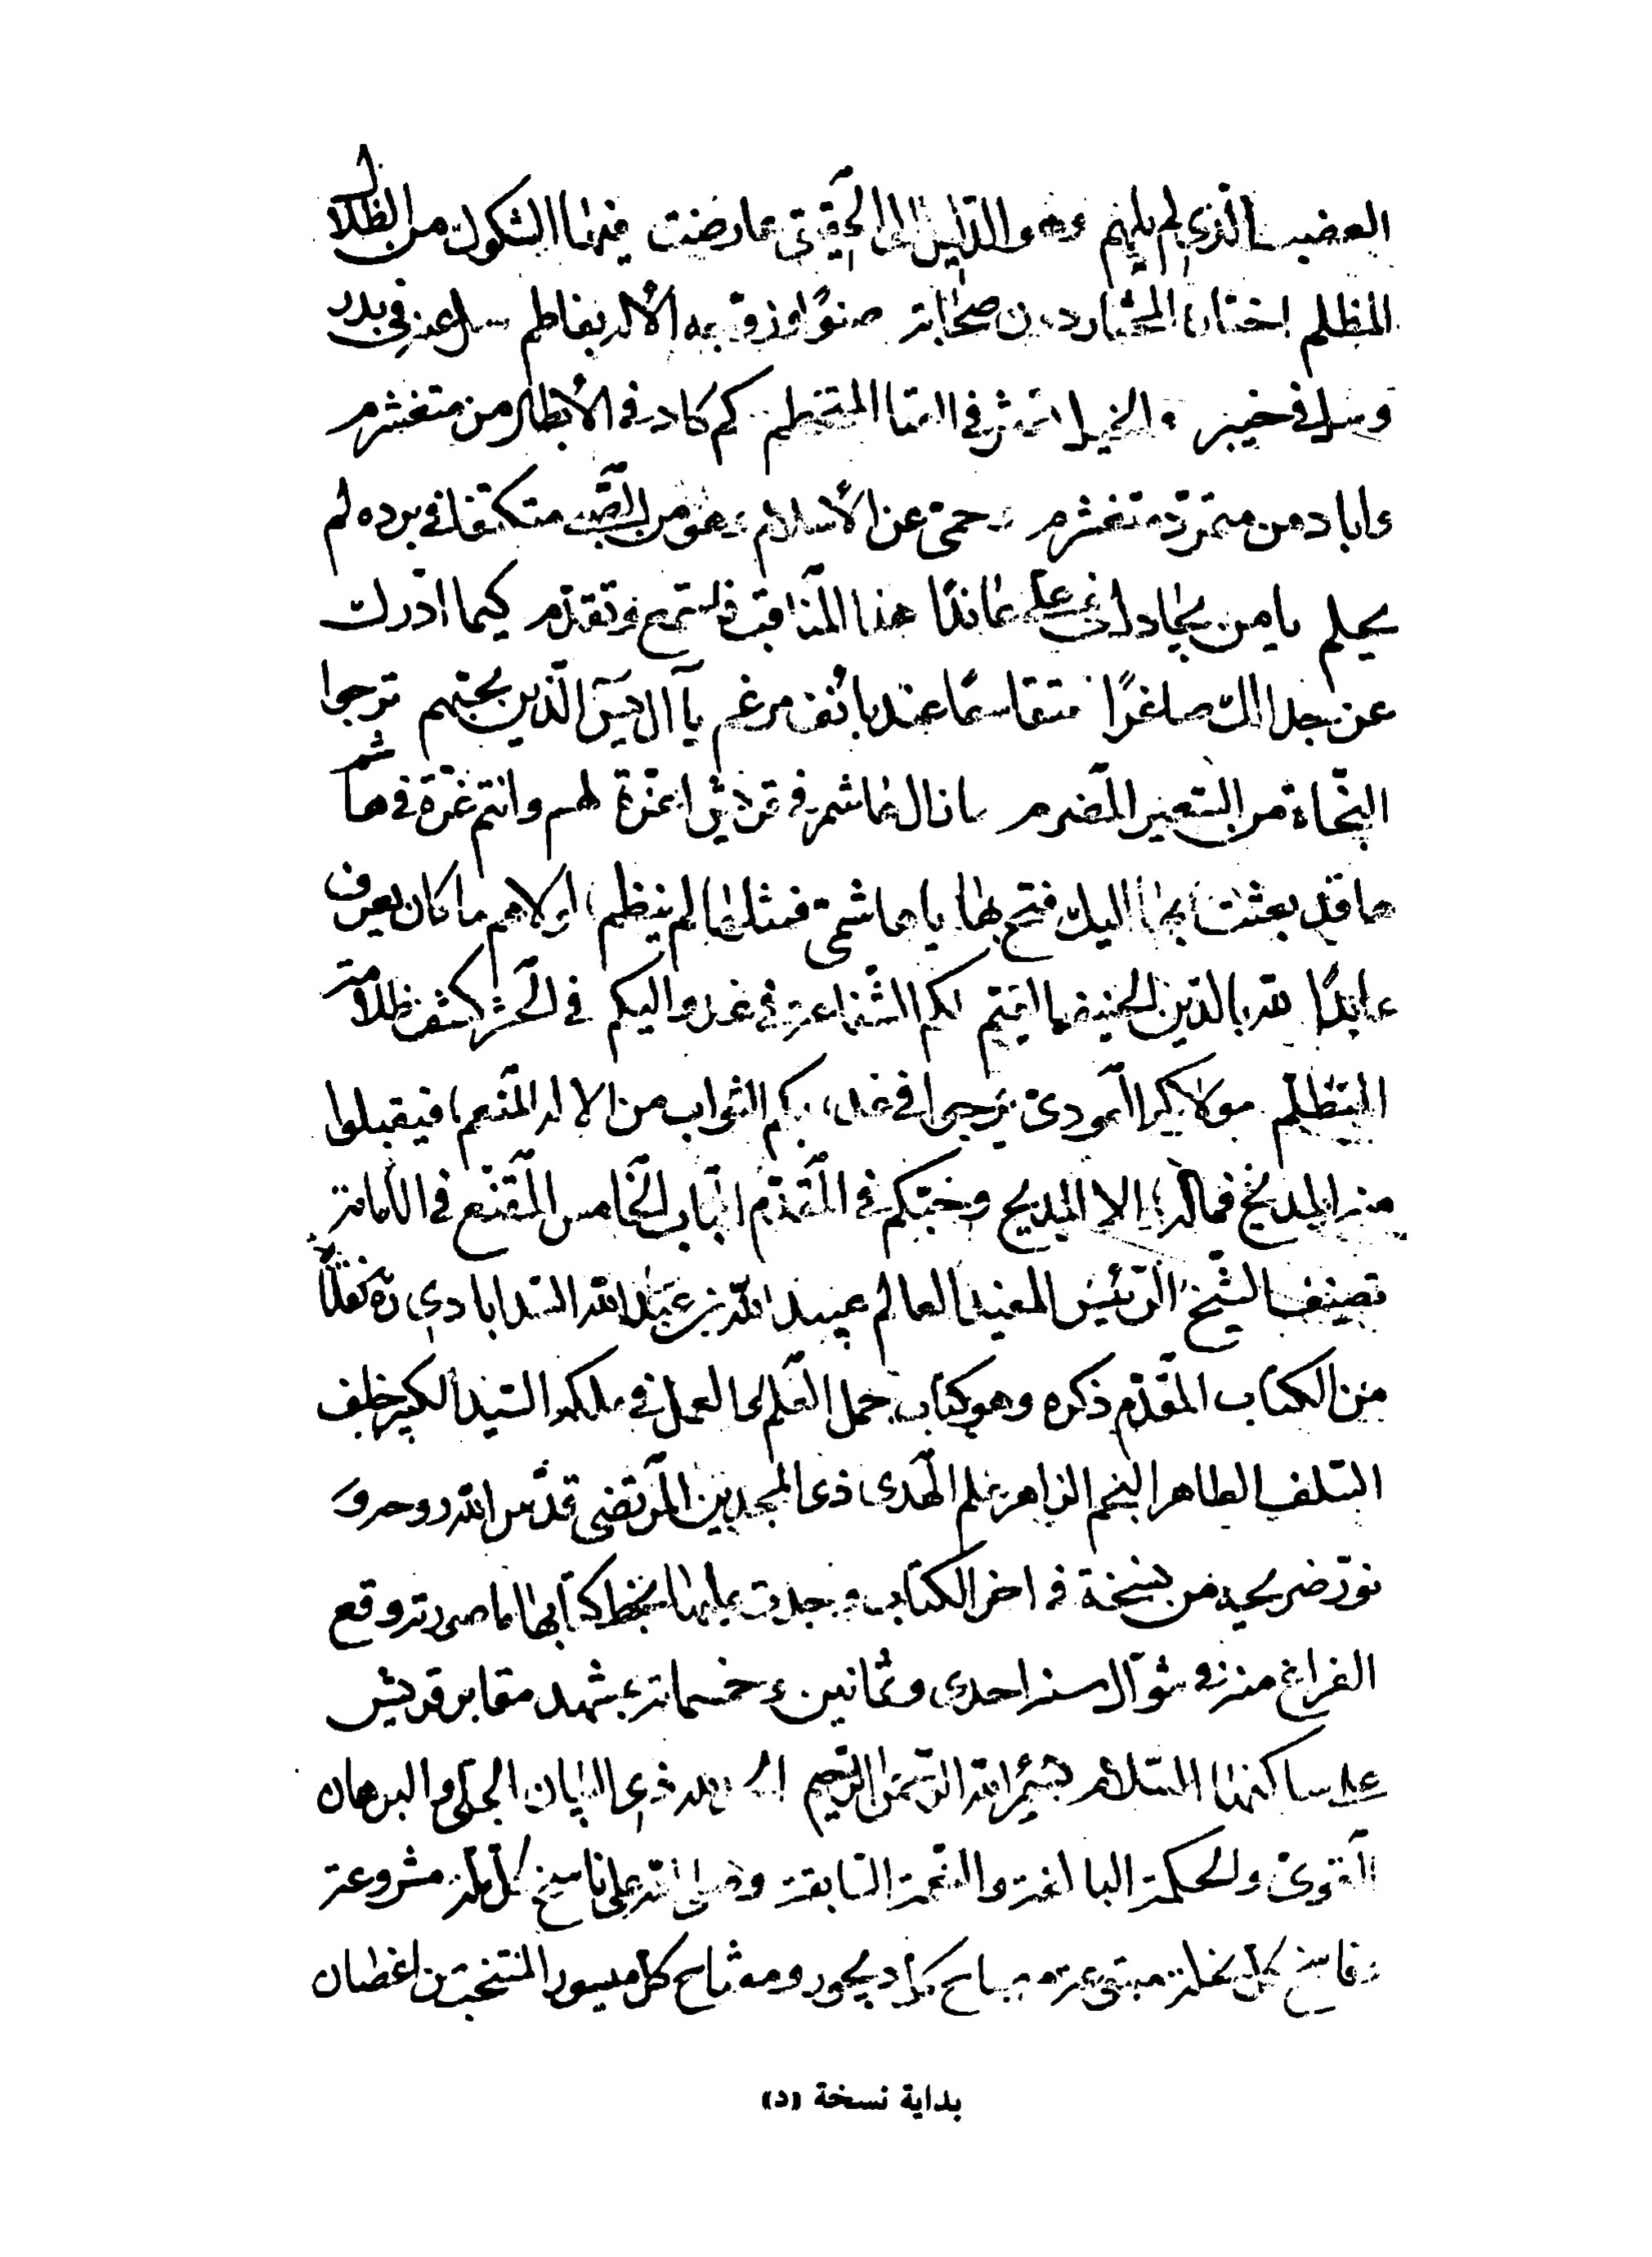 العضب الذي لم يلهم وهو الدليل الى الحقيقي عارضت فيها الشكول من الظلا
المظلم اختاره المختار دون صحابة صنوًا وزوّجه الأله بفاطم سل عنه في بدر
وسل في خيبر والخيل تعثر في القنا المتحطم كم كاد في الأبطال من متغشرم
وابادمن متمرّد متغشرم وحمى عن الأسلام وهو من الصّب متكنفا في برده لم
يحلم يا من يجادل في علي عاندًا هذا المناقب فاستمع وتقدّم كيما ادّرك
عن جدالك صاغرًا متقاسمًا عندبأنف مرغم يا آل يس الّذين بحبّهم نرجوا
النجاة من السّعير المضرم ما نال هاشم في قريش اعزة لهم وانتم غرّة في هاشم
ها قد بعثت بها اليك فتح بها يا هاشمي فمثلها لم ينظم اولاهم ما كان يعرف
عابدًا لله بالدّين الحنيف القيّم لكم الشّفاعة في غد واليكم في الحشر كشف ظلامة
المتظلّم مولاكم الآمودي يرجوا في غد بكم الثواب من الاله المنعم فيقبلوا
منه المديح فماله إلا المديح وحبّكم في المقدّم الباب الخامس المقنع في الامامة
تصنيف الشيخ الرّئيس المفيد العالم عبيد الله بن عبد الله السّدابادي ره نقلًا
من الكتاب المقدّم ذكره وهو كتاب جمل العلم والعمل في ملكه السيّد الكبير خلف
السّلف الطاهر النجم الزاهر علم الهدى ذى المجدين المرتضى قدّس الله روحه و
نوّر ضريحه من نسخة في اخر الكتاب وجدت عليها بخط كاتبها ما صورته وقع
الفراغ منه في شوّال سنة احدى وثمانين وخمسمائة بمشهد مقابر قريش
على ساكنها السّلام بسم الله الرّحمن الرّحيم الحمد لله ذي البيان الجلي والبرهان
القوىّ والحكمة البالغة والنّعمة السّابقة وصلى الله على ناسخ كلّ ملّة مشروعة
وفاسخ كلّ نحلة مبتدعة مصباح كل ديجور ومفتاح كلّ ميسور المنتخب من اغصان
بداية نسخة (د)